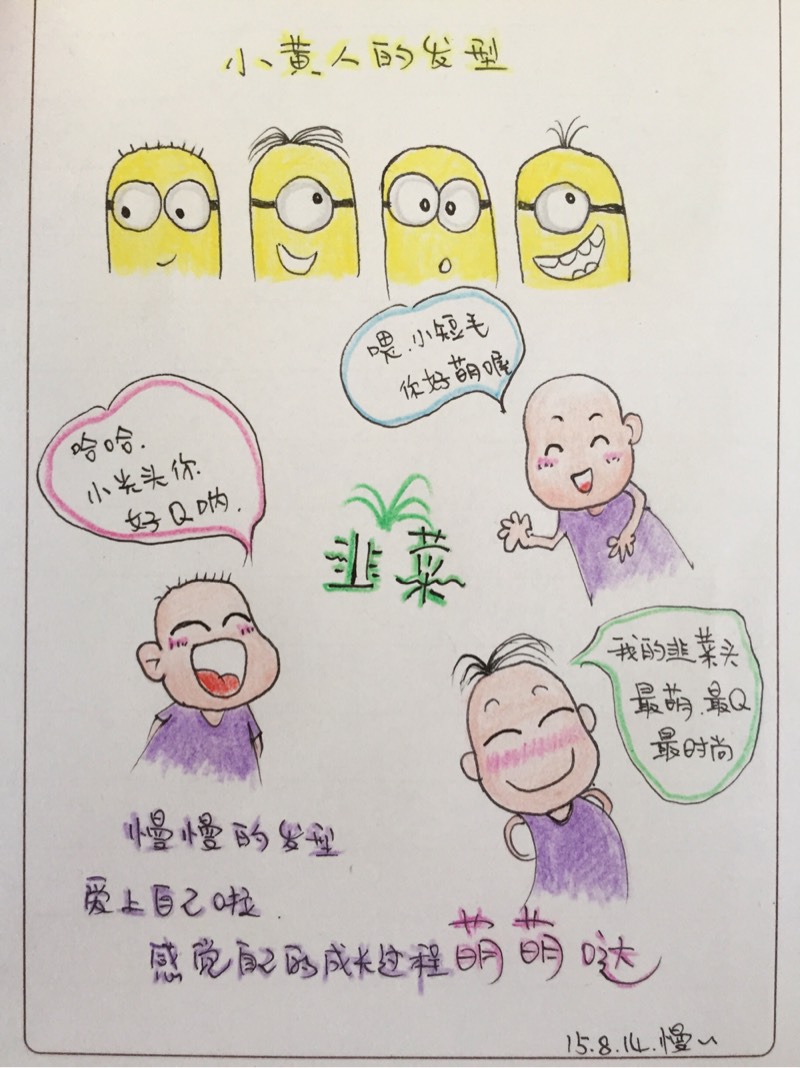 小黄人的发型
喂.小短毛
你好萌喔
哈哈.
小光头你
好Q呐.
韭菜
我的韭菜头
最萌.最Q
最时尚
慢慢的发型
爱上自己啦.
感觉自己的成长过程萌萌哒
15.8.14.慢